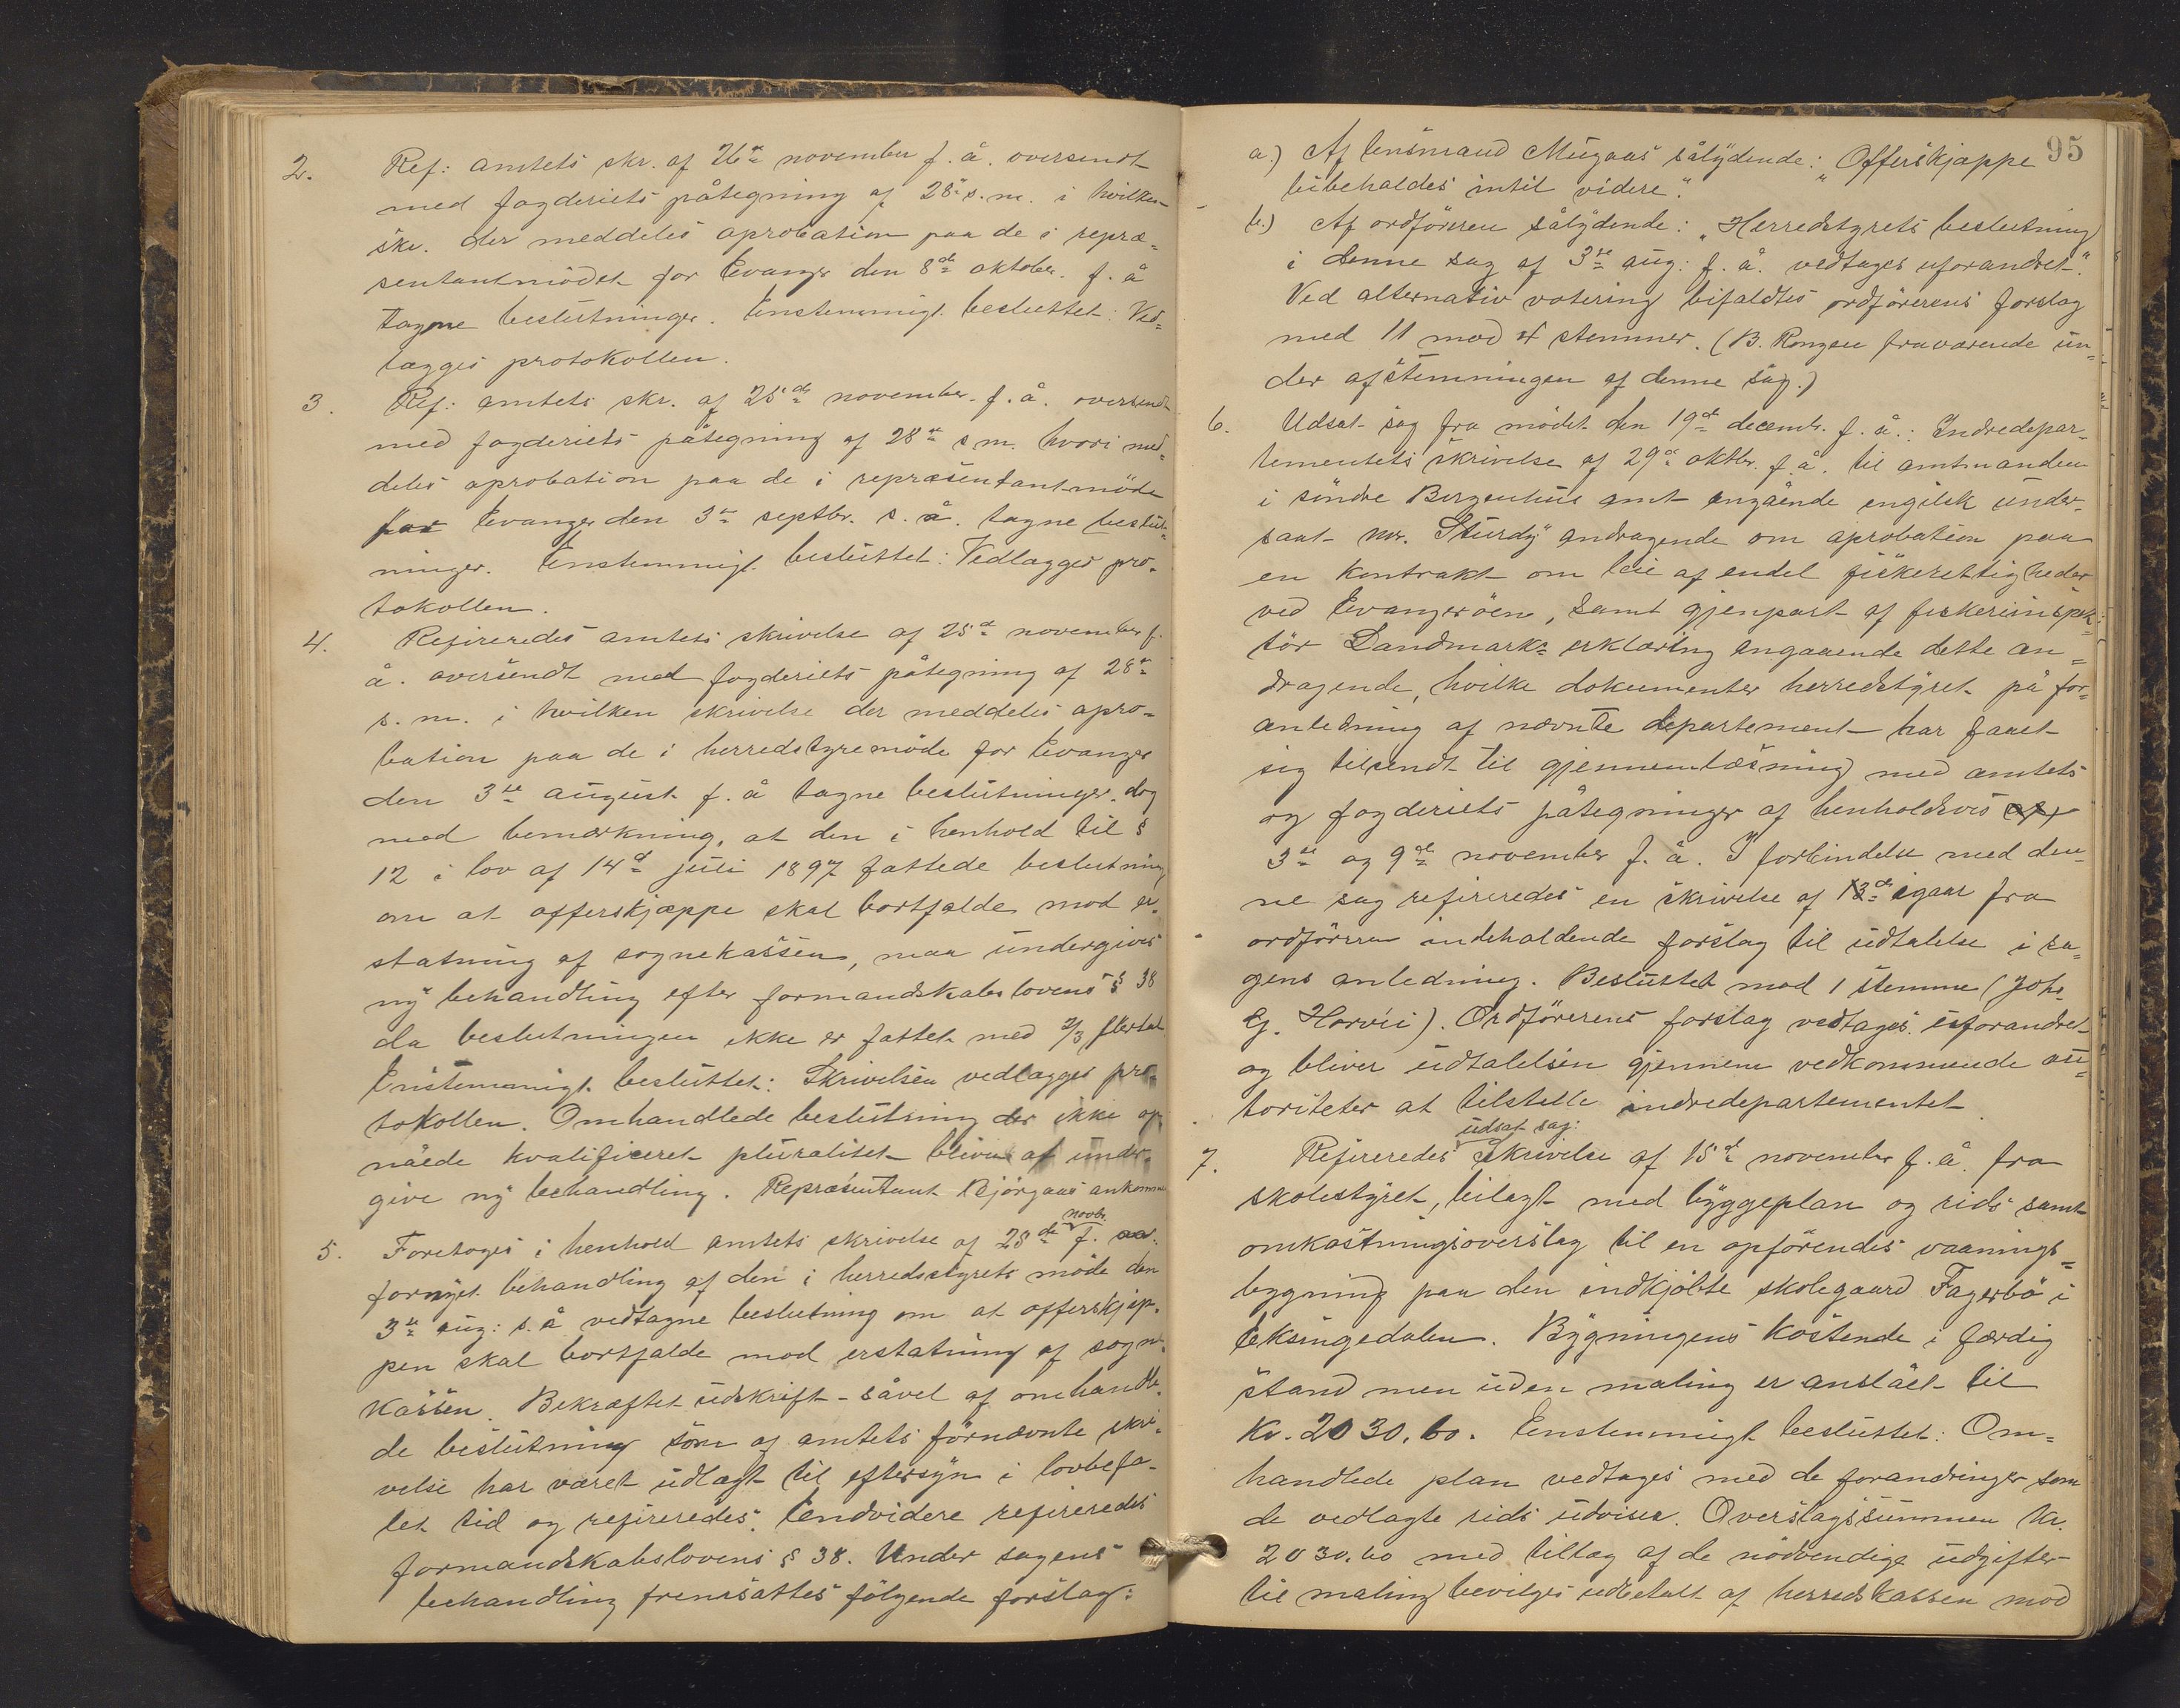 2. Ref: amtets skr. af 26de november f. å. oversendt
med fogderiets påtegning af 28de s. m. i hvilken
skr. der meddeles aprobation paa de i repræ-
sentantmödet for Evanger den 8de oktober f. å
tagne beslutninger. Enstemmigt besluttet: Ved-
lægges protokollen.
3. Ref: amtets skr. af 25de november f. å. oversendt
med fogderiets påtegning af 28de s m. hvori med-
deles aprobation paa de i repræsentantmöde
for Evanger den 3de septbr. s. å. tagne beslut-
ninger. Enstemmigt besluttet: Vedlægges pro-
tokollen.
4. Refereredes amtets skrivelse af 25de november f.
å. oversendt med fogderiets påtegning af 28de
s. m. i hvilken skrivelse der meddeles apro-
bation paa de i herredstyremöde for Evanger
den 3die august f. å tagne beslutninger, dog
med bemærkning, at den i henhold til §
12 i lov af 14de juli 1897 fattede beslutning
om at offerskjæppe skal bortfalde mod er-
statning af sognekassen, maa undergives
ny behandling efter formandskabslovens § 38
da beslutningen ikke er fattet med 2/3 flertal.
Enstemmigt besluttet: Skrivelsen vedlægges pro-
tokollen. Omhandlede beslutning der ikke op-
nåede kvalificeret pluralitet bliver at under-
give ny behandling. Repræsentant Bjørgaas ankommer
5. Foretoges i henhold amtets skrivelse af 25de novbr. f. aa.
fornyet behandling af den i herredsstyrets möde den
3die aug: s. å vedtagne beslutning om at offerskjæp-
pen skal bortfalde mod erstatning af sogne-
kassen. Bekræftet udskrift såvel af omhandle-
de beslutning som af amtets förnævnte skri-
velse har været udlagt til eftersyn i lovbefa-
let tid og refereredes. Endvidere refereredes
formandskabslovens § 38. Under sagens
behandling fremsattes følgende forslag:
95
a.) Af lensmand Mugaas sålydende: "Offerskjæppe
bibeholdes intil videre".
b.) Af ordföreren sålydende: "Herredstyrets beslutning
i denne sag af 3die aug: f. å. vedtages uforandret".
Ved alternativ votering bifaldtes ordförerens forslag
med 11 mod 4 stemmer. (B. Rongen fraværende un-
der afstemningen af denne sag.)
6. Udsat sag fra mödet den 19de decembr. f. å.: Indredepar-
tementets skrivelse af 29de oktbr. f. å. til amtmanden
i söndre Bergenhus amt angående engelsk under-
saat mr. Sturdy andragende om aprobation paa
en kontrakt om leie af endel fiskerettigheder
ved Evangeröen, samt gjenpart af fiskeriinspek-
tör Landmarks erklæring angaaende dette an-
dragende, hvilke dokumenter herredstyret på for-
anledning af nævnte departement har faaet
sig tilsendt til gjennemlæsning med amtets
og fogderiets påtegninger af henholdsvis
3die og 9de november f. å. I forbindelse med den-
ne sag refereredes en skrivelse af igaar fra
ordföreren indeholdende forslag til udtalelse i sa-
gens anledning. Besluttet mod 1 stemme (Johs
G. Horvei). Ordförerens forslag vedtages uforandret
og bliver udtalelsen gjennem vedkommende au-
toriteter at tilstelle indredepartementet.
7. Refereredes udsat sag: Skrivelse af 15de november f. å. fra
skolestyret, bilagt med byggeplan og rids samt
omkostningsoverslag til en opförendes vaanings-
bygning paa den indkjöbte skolegaard Fagerbö i
Eksingedalen. Bygningens kostende i færdig
stand men uden maling er anslået til
Kr. 2030.60. Enstemmigt besluttet: Om-
handlede plan vedtages med de forandringer som
de vedlagte rids udviser. Overslagssummen kr.
2030.60 med tillæg af de nödvendige udgifter
til maling bevilges udbetalt af herredskassen mod